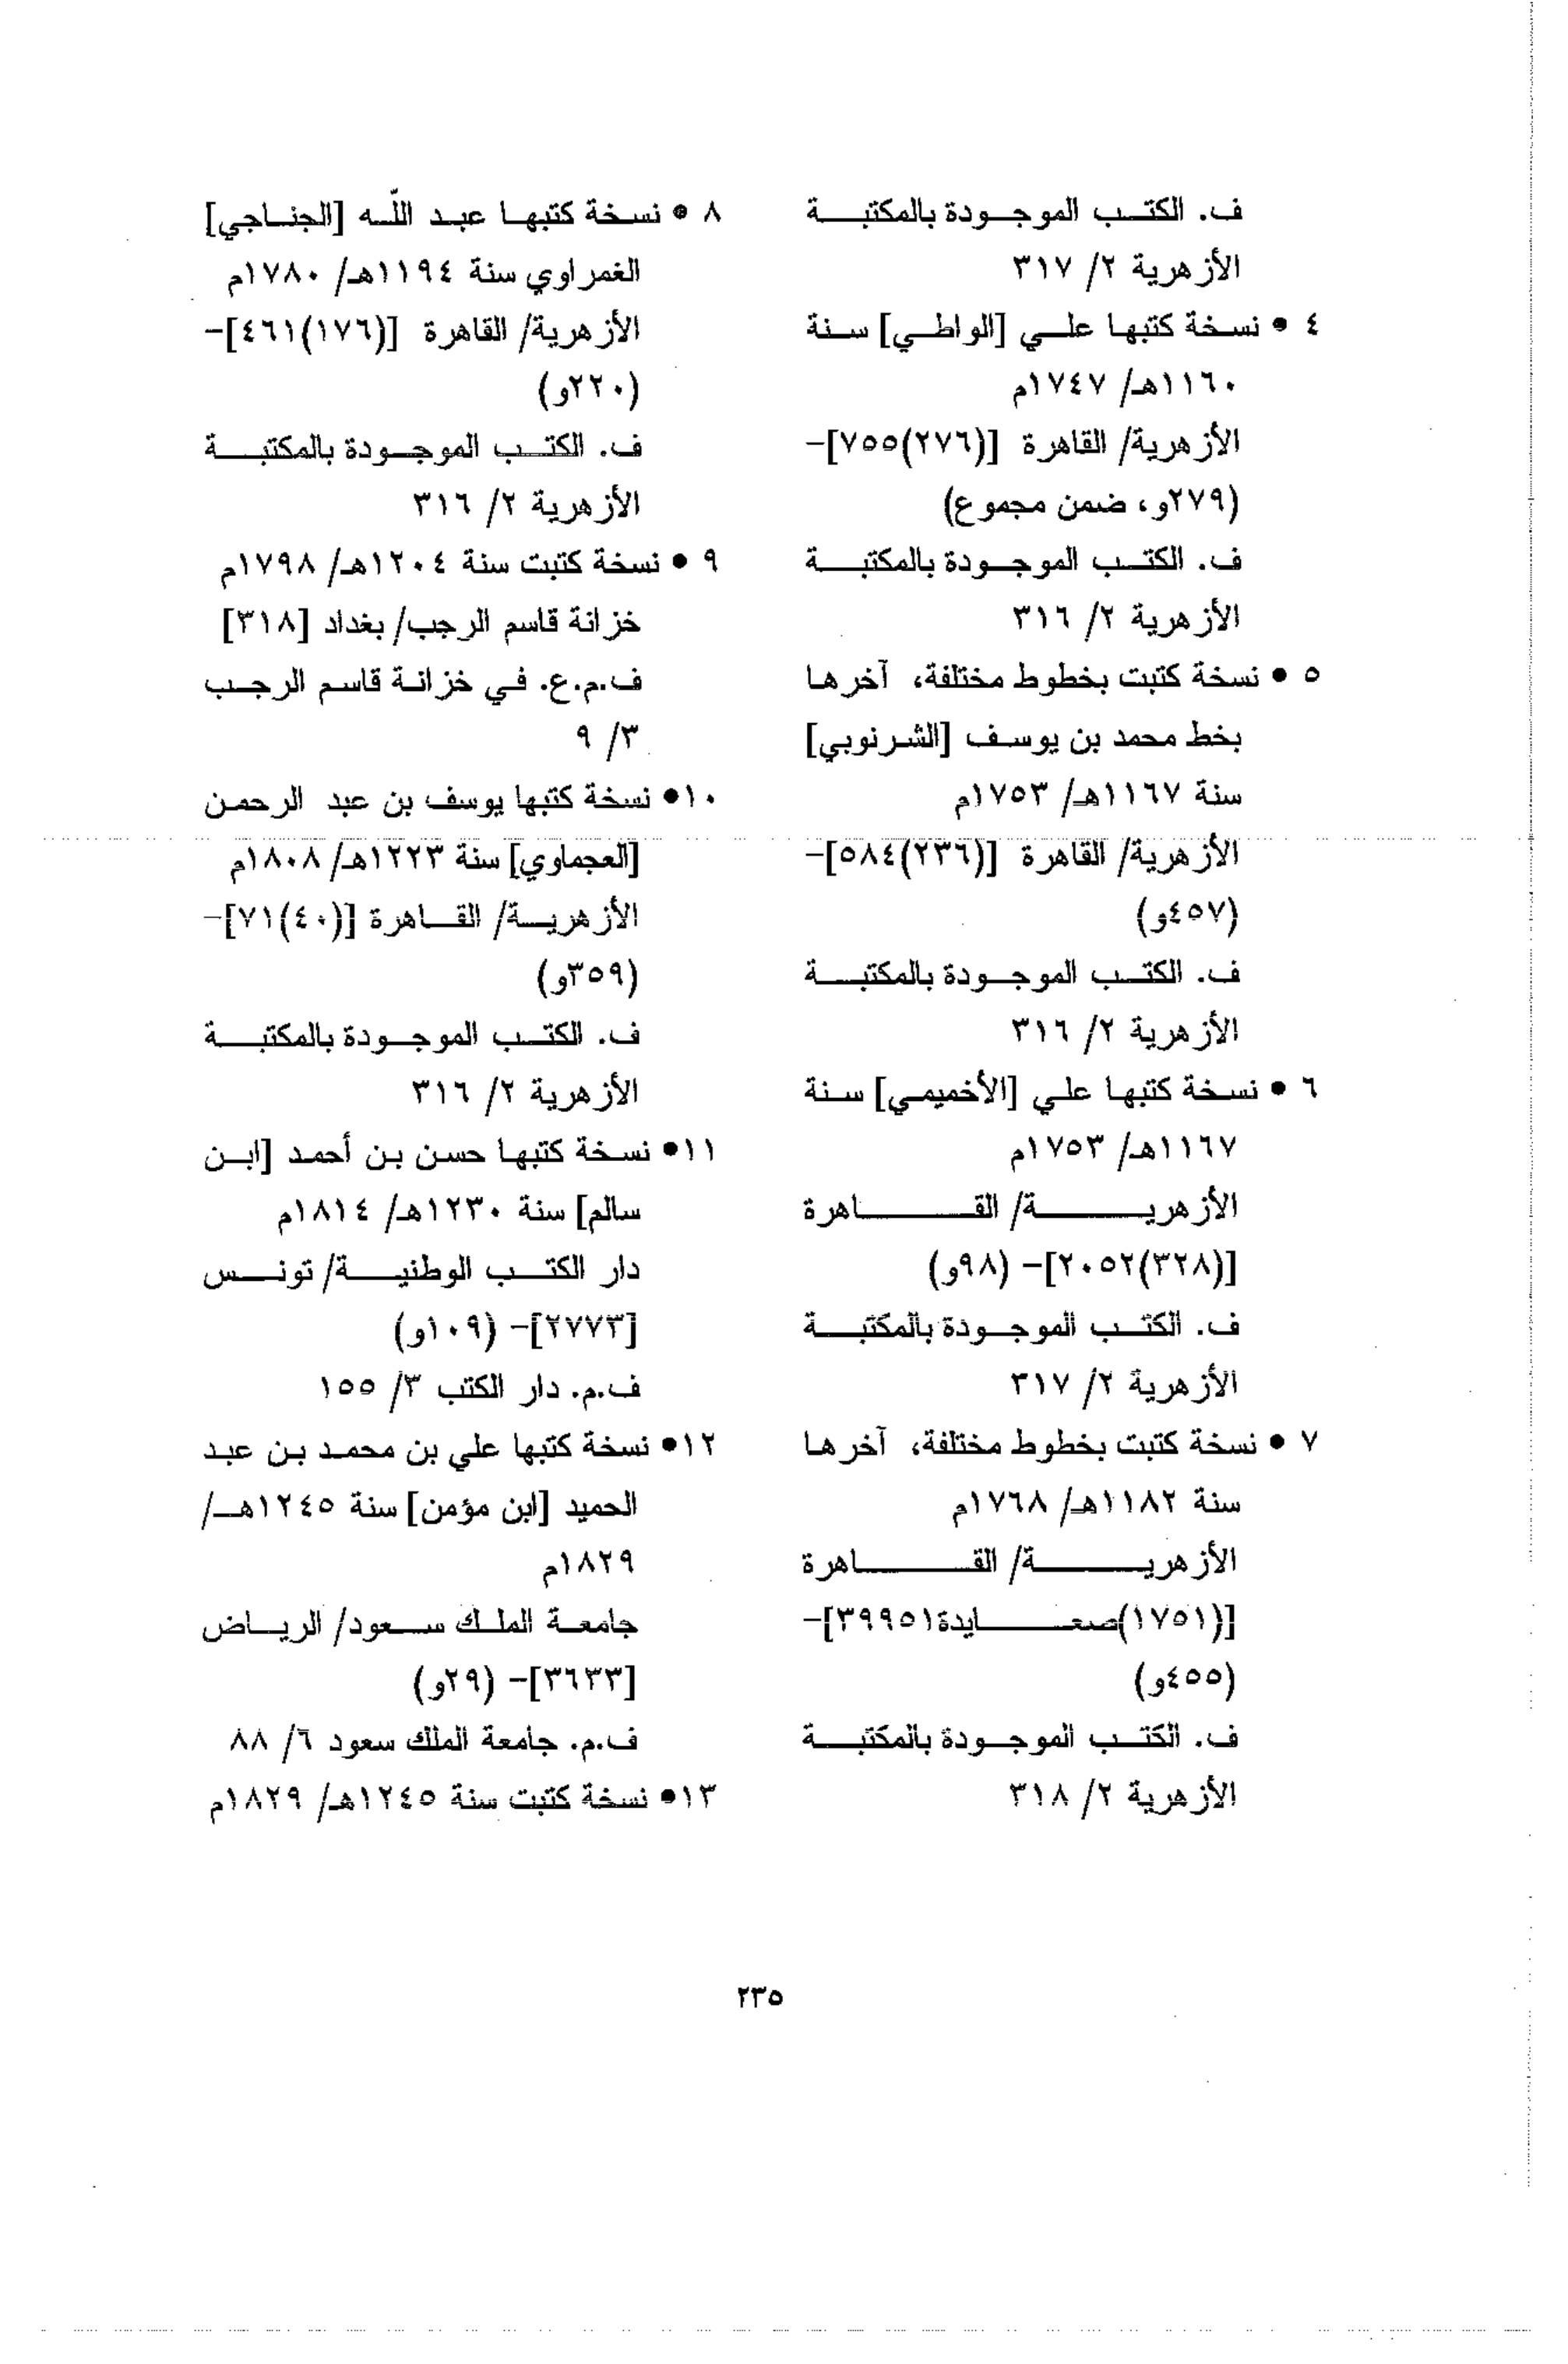 ف. الكتب الموجودة بالمكتبة
الأزهرية ٢/ ٣١٧
٤ • نسخة كتبها علي [الواطي] سنة
١١٦٠هـ/ ١٧٤٧م
الأزهرية/ القاهرة [(٢٧٦)٧٥٥]-
(٢٧٩و، ضمن مجموع)
ف. الكتب الموجودة بالمكتبة
الأزهرية ٢/ ٣١٦
٥ • نسخة كتبت بخطوط مختلفة، آخرها
بخط محمد بن يوسف [الشرنوبي]
سنة ١١٦٧هـ/ ١٧٥٣م
الأزهرية/ القاهرة [(٢٣٦)٥٨٤]-
(٤٥٧و)
ف. الكتب الموجودة بالمكتبة
الأزهرية ٢/ ٣١٦
٦ • نسخة كتبها علي [الأخميمي] سنة
١١٦٧هـ/ ١٧٥٣م
الأزهرية/ القاهرة
[(٣٢٨)٢٠٥٢]- (٩٨و)
ف. الكتب الموجودة بالمكتبة
الأزهرية ٢/ ٣١٧
٧ • نسخة كتبت بخطوط مختلفة، آخرها
سنة ١١٨٢هـ/ ١٧٦٨م
الأزهرية/ القاهرة
[(١٧٥١)صعايدة٣٩٩٥١]-
(٤٥٥و)
ف. الكتب الموجودة بالمكتبة
الأزهرية ٢/ ٣١٨
٨ • نسخة كتبها عبد اللّه [الجناجي]
الغمراوي سنة ١١٩٤هـ/ ١٧٨٠م
الأزهرية/ القاهرة [(١٧٦)٤٦١]-
(٢٢٠و)
ف. الكتب الموجودة بالمكتبة
الأزهرية ٢/ ٣١٦
٩ • نسخة كتبت سنة ١٢٠٤هـ/ ١٧٩٨م
خزانة قاسم الرجب/ بغداد [٣١٨]
ف.م.ع. في خزانة قاسم الرجب
٣/ ٩
١٠• نسخة كتبها يوسف بن عبد الرحمن
[العجماوي] سنة ١٢٢٣هـ/ ١٨٠٨م
الأزهرية/ القاهرة [(٤٠)٧١]-
(٣٥٩و)
ف. الكتب الموجودة بالمكتبة
الأزهرية ٢/ ٣١٦
١١• نسخة كتبها حسن بن أحمد [ابن
سالم] سنة ١٢٣٠هـ/ ١٨١٤م
دار الكتب الوطنية/ تونس
[٢٧٧٣]- (١٠٩و)
ف.م. دار الكتب ٣/ ١٥٥
١٢• نسخة كتبها علي بن محمد بن عبد
الحميد [ابن مؤمن] سنة ١٢٤٥هـ/
١٨٢٩م
جامعة الملك سعود/ الرياض
[٣٦٣٣]- (٢٩و)
ف.م. جامعة الملك سعود ٦/ ٨٨
١٣• نسخة كتبت سنة ١٢٤٥هـ/ ١٨٢٩م
٢٣٥